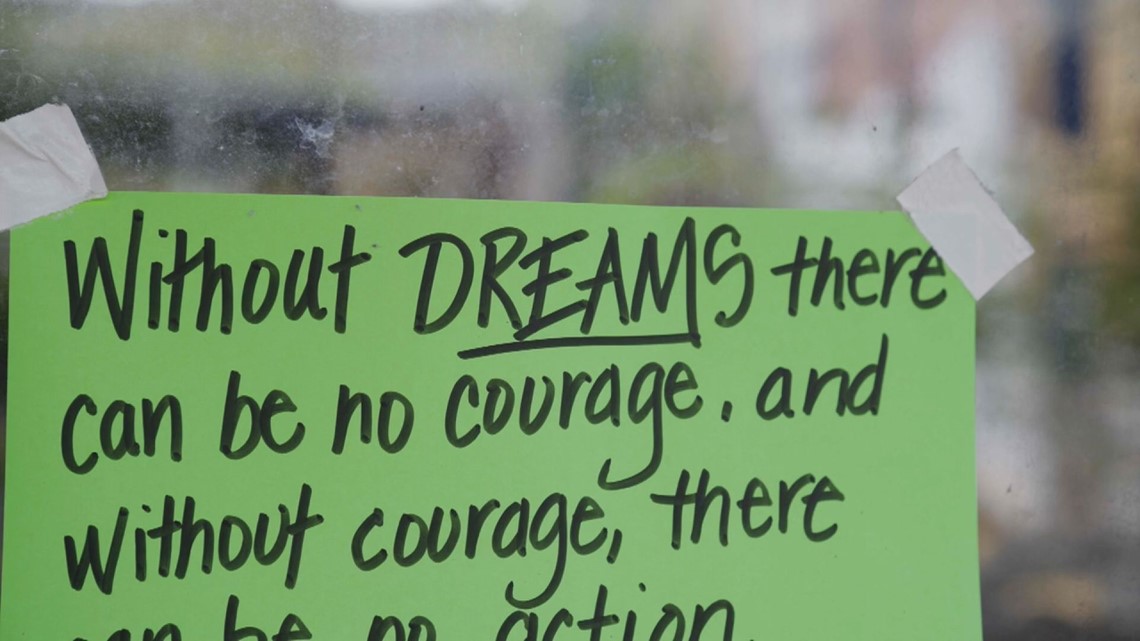 Without DREAMS there
can be no courage. and
without courage, there
can be no action.